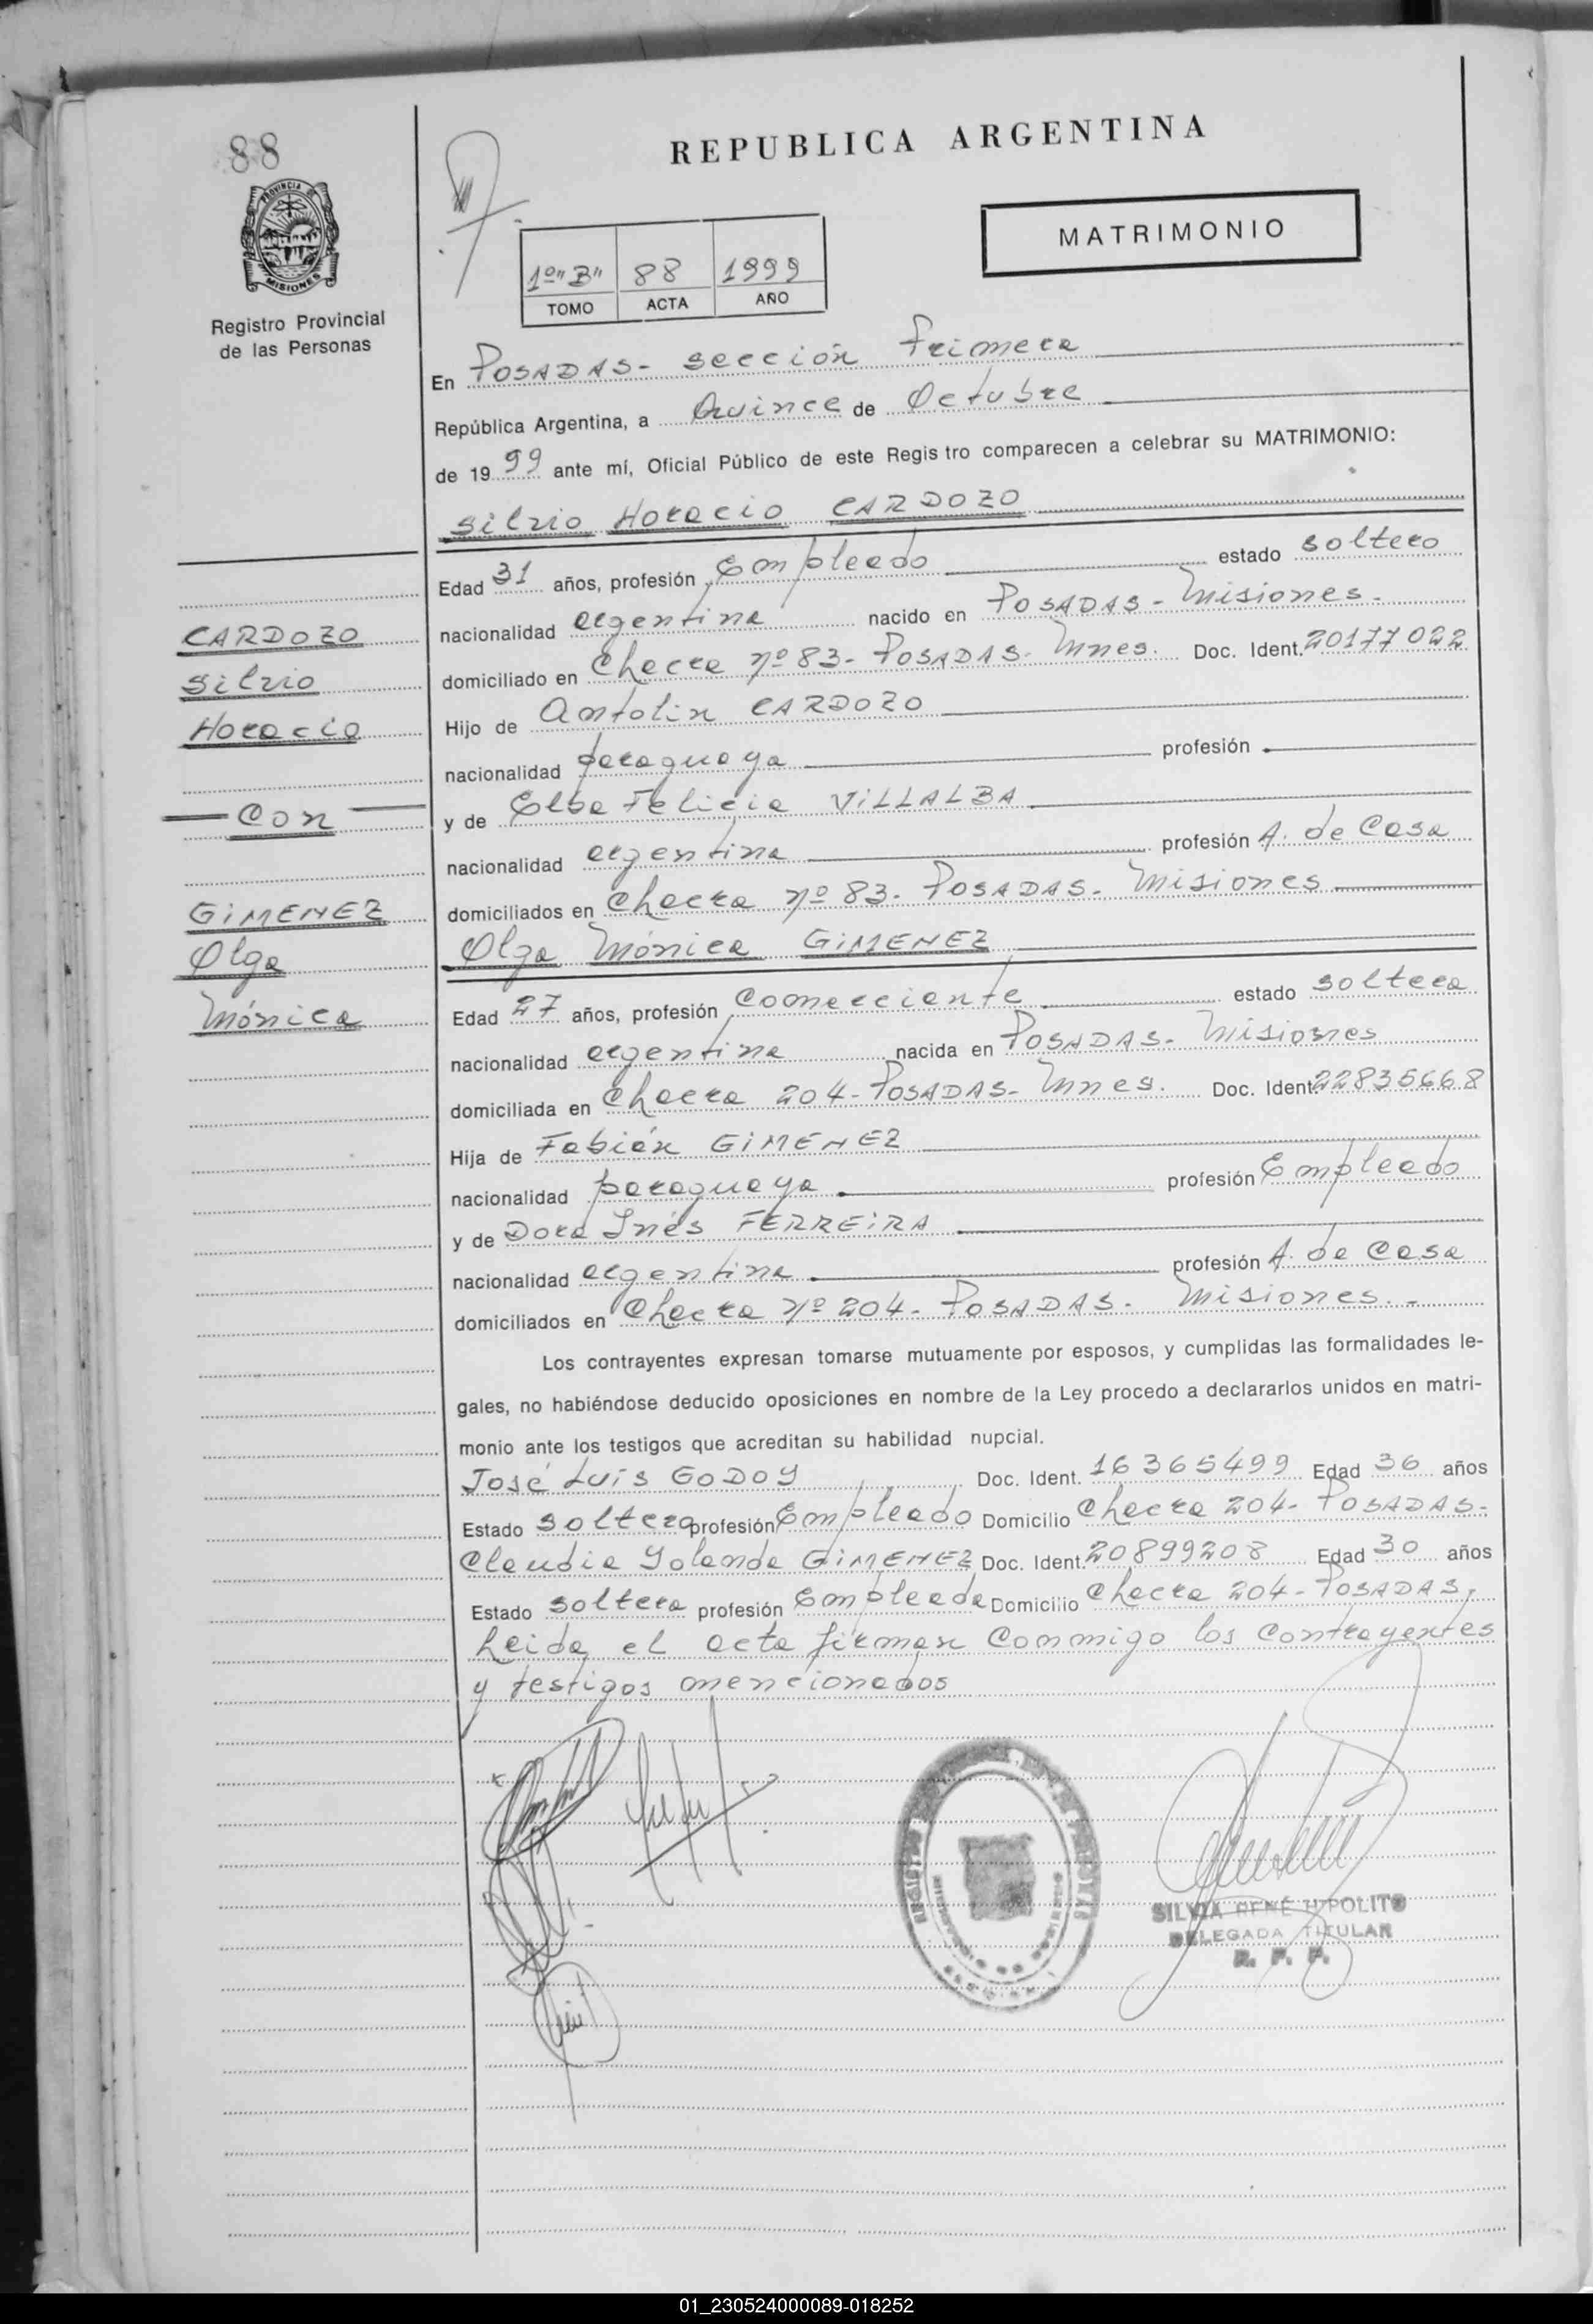 88
PROVINCIA DE
MISIONES
Registro Provincial
de las Personas
REPUBLICA ARGENTINA
MATRIMONIO
1º"B" 88 1999
TOMO ACTA AÑO
En POSADAS- sección Primera
República Argentina, a Quince de Octubre
de 1999 ante mí, Oficial Público de este Regis tro comparecen a celebrar su MATRIMONIO:
Silvio Horacio CARDOZO
Edad 31 años, profesión Empleado estado soltero
nacionalidad argentina nacido en POSADAS- Misiones.
domiciliado en Chacra nº 83- POSADAS- Mnes. Doc. Ident. 20177022
Hijo de Antolin CARDOZO
nacionalidad paraguaya profesión
y de Elba Felicia VILLALBA
nacionalidad argentina profesión A. de Casa
domiciliados en Chacra nº 83- POSADAS- Misiones
Olga Mónica GIMENEZ
Edad 27 años, profesión Comerciante estado soltera
nacionalidad argentina nacida en POSADAS- Misiones
domiciliada en Chacra 204- POSADAS- Mnes. Doc. Ident. 22835668
Hija de Fabián GIMENEZ
nacionalidad paraguaya profesión Empleado
y de Dora Inés FERREIRA
nacionalidad argentina profesión A. de Casa
domiciliados en Chacra nº 204- POSADAS- Misiones.-
Los contrayentes expresan tomarse mutuamente por esposos, y cumplidas las formalidades le-
gales, no habiéndose deducido oposiciones en nombre de la Ley procedo a declararlos unidos en matri-
monio ante los testigos que acreditan su habilidad nupcial.
José Luis GODOY Doc. Ident. 16365499 Edad 36 años
Estado soltero profesión Empleado Domicilio Chacra 204- POSADAS-
Claudia Yolanda GIMENEZ Doc. Ident. 20899208 Edad 30 años
Estado soltera profesión Empleada Domicilio Chacra 204- POSADAS,
Leida el acta firman conmigo los contrayentes
y testigos mencionados
CARDOZO
Silvio
Horacio
Con
GIMENEZ
Olga
Mónica
SILVIA RENÉ HIPOLITO
DELEGADA TITULAR
R. P. P.
01_230524000089-018252